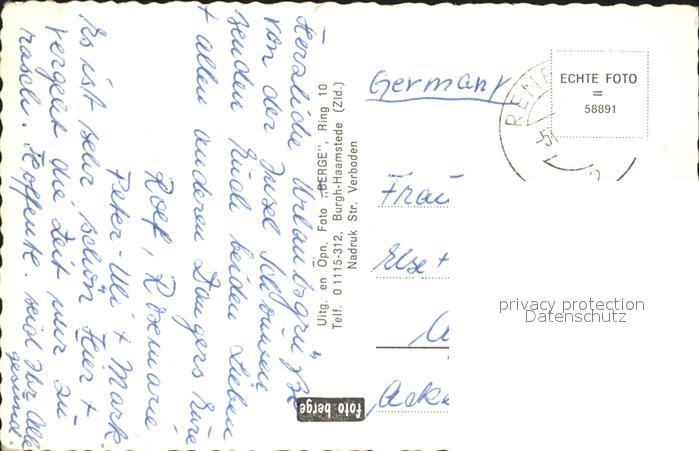 Herzliche Urlaubsgrüße
von der Insel Schouwen
senden Euch beiden Lieben
+ allen anderen Eure
Roef, Rosemarie
Peter-Uli + Mark.
Es ist sehr schön hier +
vergeht die Zeit nur zu
rasch. Hoffentl. seid Ihr alle
gesund.
Uitg. en Opn. Foto „BERGE", Ring 10
Telf. 0 1115-312, Burgh-Haamstede (Zld.)
Nadruk Str. Verboden
foto berge
Germany
ECHTE FOTO
=
58891
RENE
-5
Frau
Else +
privacy protection
Datenschutz